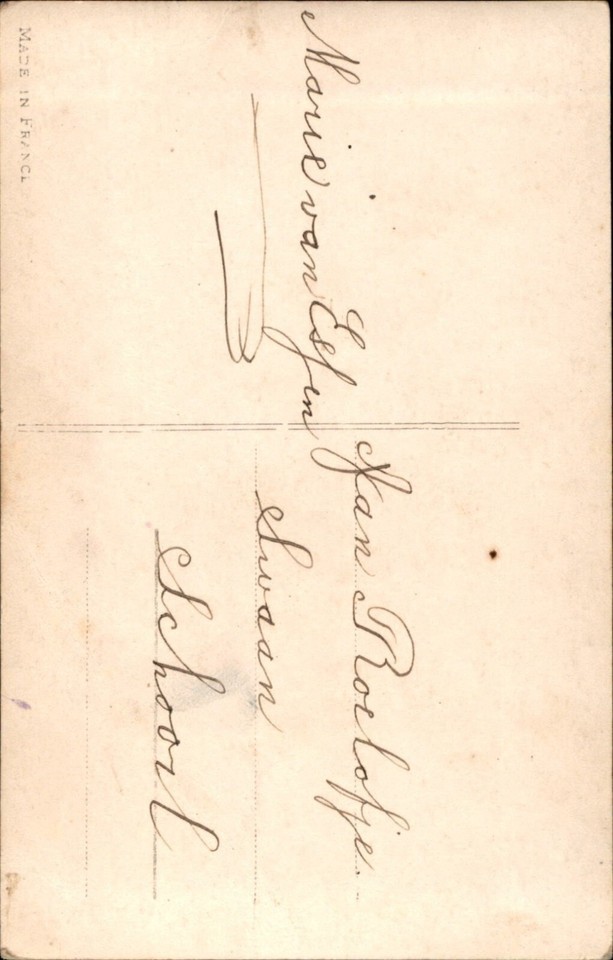 MADE IN FRANCE
Marie van Essen
Jan Roelofje.
Swaan
Schoorl